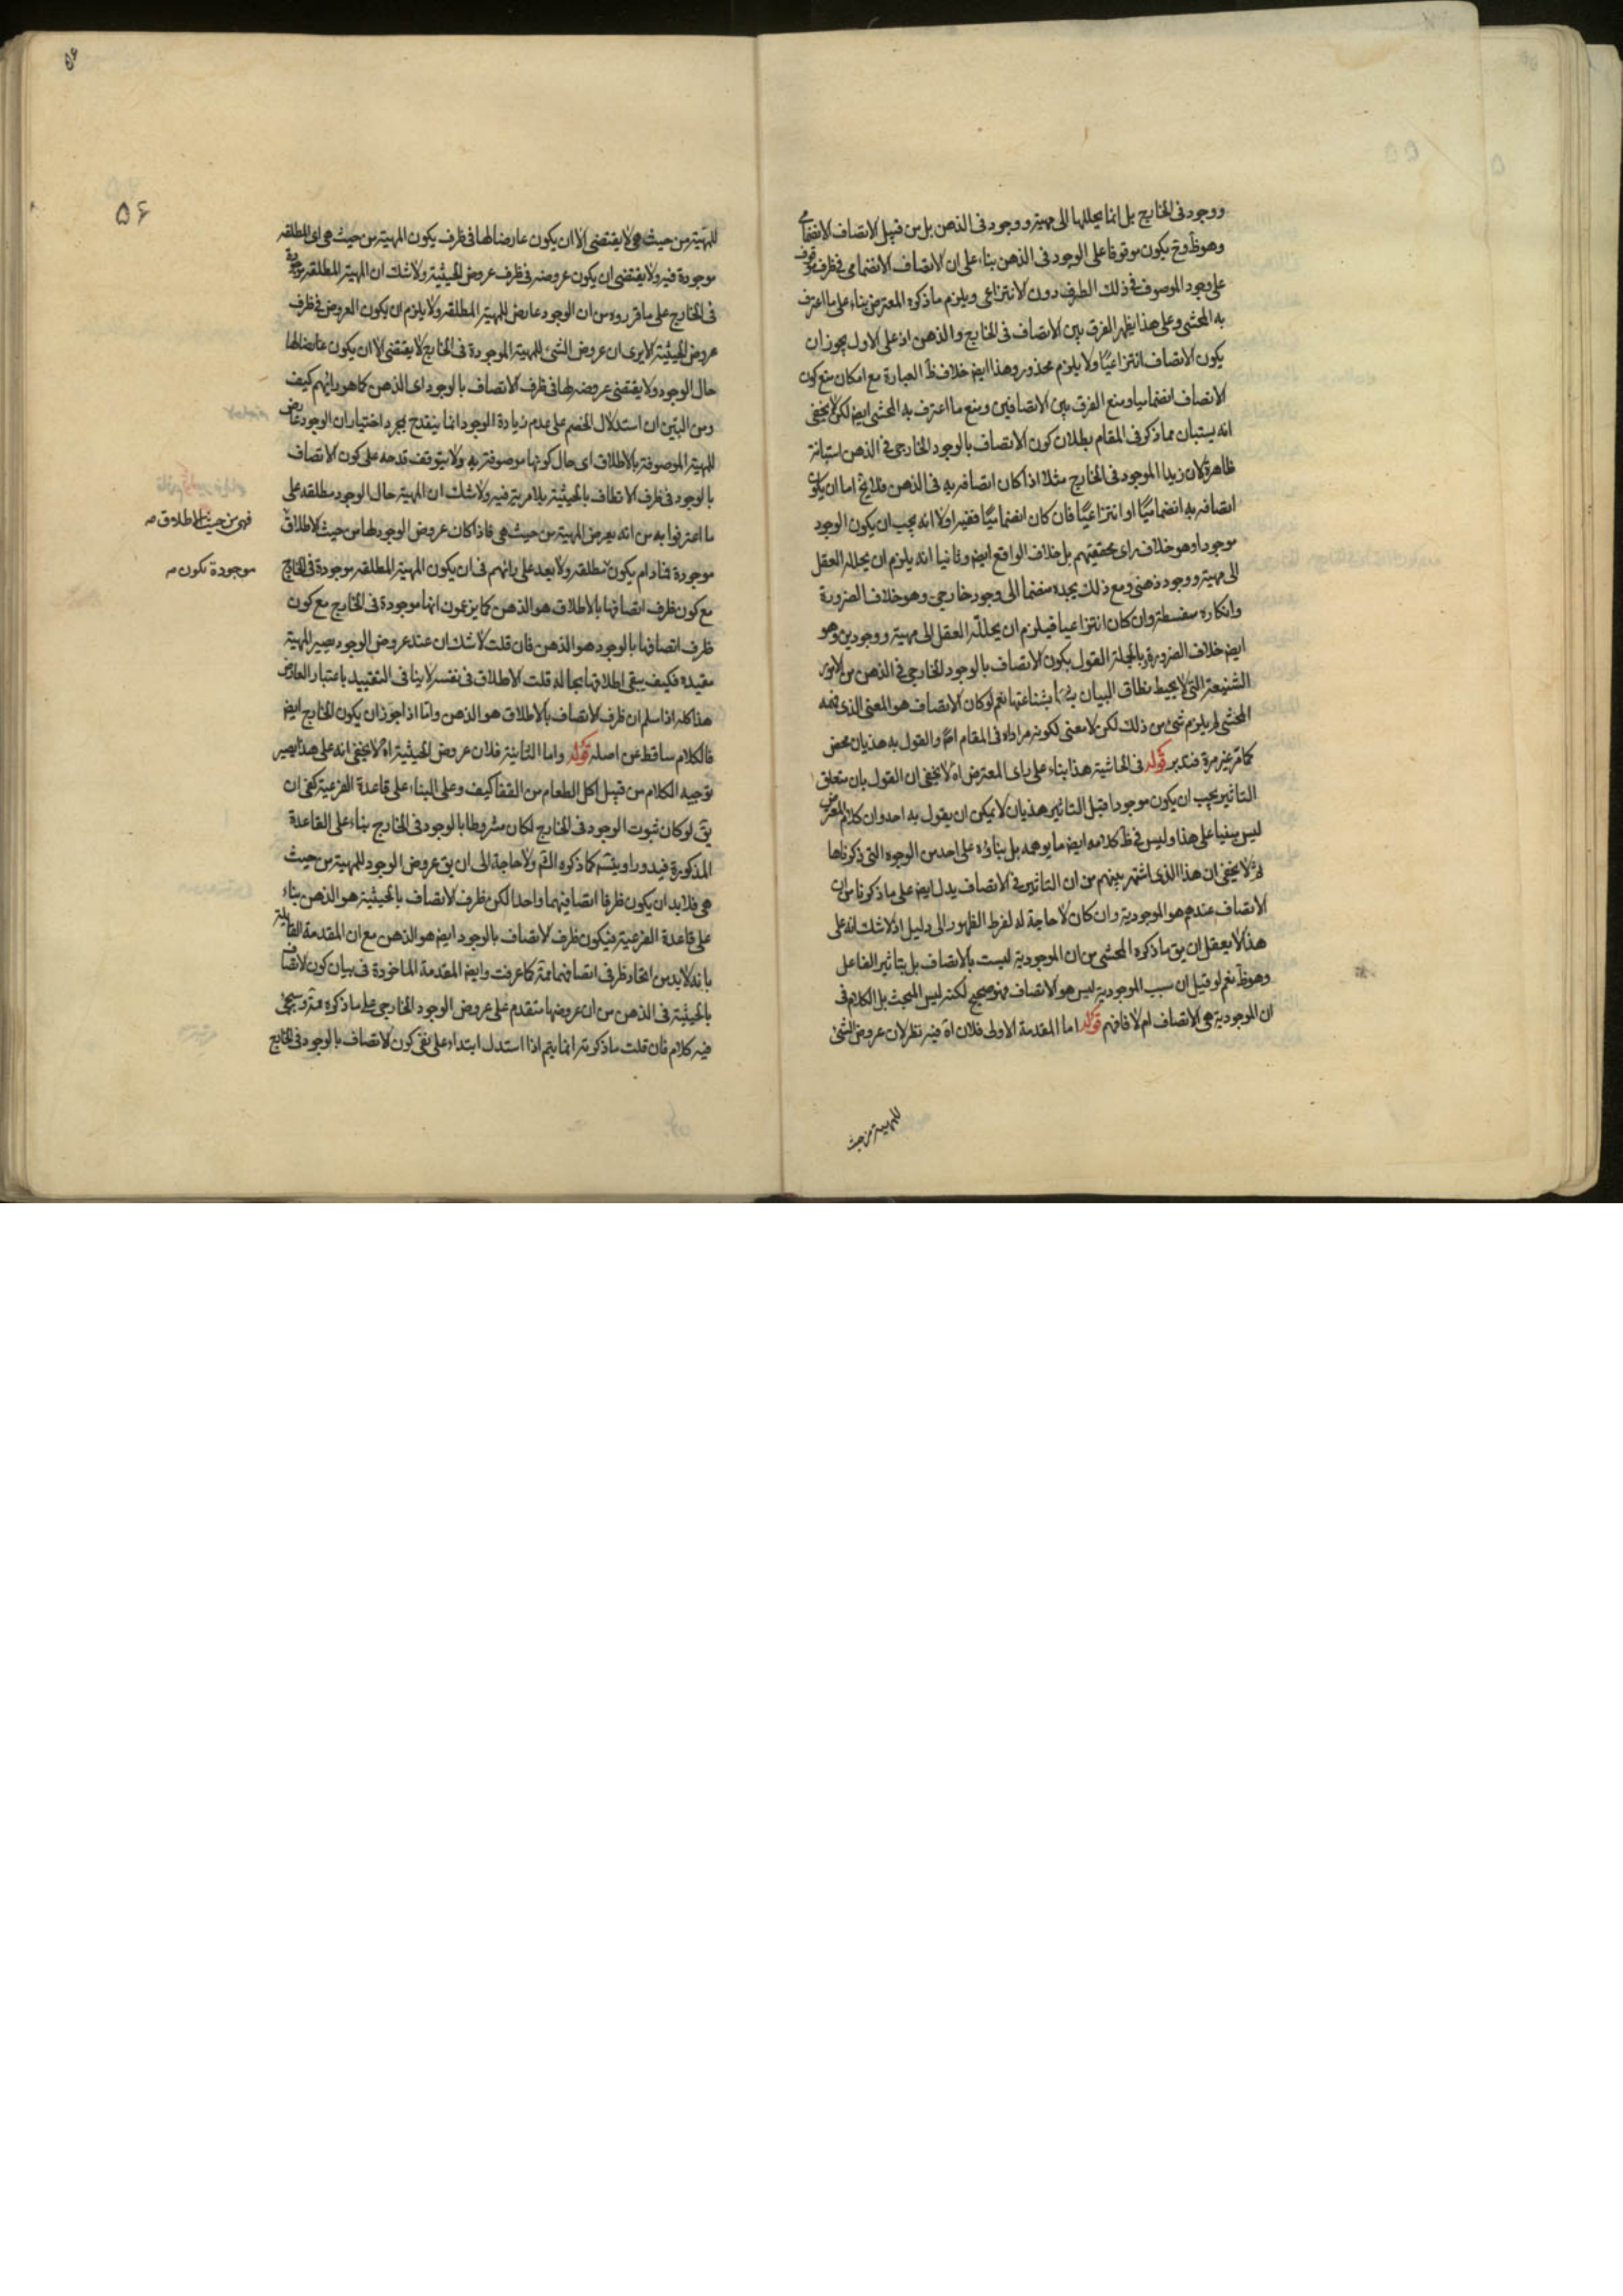 ووجود فى الخارج بل انما يحللها الى مهية ووجود فى الذهن بل من قبيل الاتصاف الانضمامى
وهوظ وح يكون موقوفا على الوجود فى الذهن بناء على ان الاتصاف الانضمامى فى ظرف موقوف
على وجود الموصوف فى ذلك الظرف دون الانتزاعى ويلزم ما ذكره المعترض بناء على ما اعترف
به المحشى وعلى هذا يظهر الفرق بين الاتصاف فى الخارج والذهن اذ على الاول يجوز ان
يكون الاتصاف انتزاعيا ولا يلزم محذور وهذا ايض خلاف ظ العبارة مع امكان منع كون
الاتصاف انضماميا ومنع الفرق بين الاتصافين ومنع ما اعترف به المحشى ايض لكن لا يخفى
انه يستبان مما ذكر فى المقام بطلان كون الاتصاف بالوجود الخارجى فى الذهن استبانة
ظاهرة لان زيدا الموجود فى الخارج مثلا اذا كان اتصافه به فى الذهن فلا يخ اما ان يكون
اتصافه به انضماميا او انتزاعيا فان كان انضماميا ففيه اولا انه يجب ان يكون الوجود
موجودا وهو خلاف راى محققيهم بل خلاف الواقع ايض وثانيا انه يلزم ان يحلله العقل
الى مهية ووجود ذهنى ومع ذلك يجده منضما الى وجود خارجى وهو خلاف الضرورة
وانكاره سفسطة وان كان انتزاعيا فيلزم ان يحلله العقل الى مهية ووجودين وهو
ايض خلاف الضرورة وبالجملة القول بكون الاتصاف بالوجود الخارجى فى الذهن من الامور
الشنيعة التى لا يحيط نطاق البيان بشناعتها نعم لو كان الاتصاف هو المعنى الذى فهمه
المحشى لم يلزم شئ من ذلك لكن لا معنى لكونه مرادا فى المقام اصلا والقول به هذيان محض
كما مر غير مرة فتدبر قوله فى الحاشية هذا بناء على راى المعترض اه لا يخفى ان القول بان متعلق
التاثير يجب ان يكون موجودا قبل التاثير هذيان لا يمكن ان يقول به احد وان كلام المعترض
ليس مبنيا على هذا وليس فى ظ كلامه ايض ما يوهمه بل بناؤه على احد من الوجوه التى ذكرناها
ثم لا يخفى ان هذا الذى اشتهر بينهم من ان التاثير فى الاتصاف يدل ايض على ما ذكرنا من ان
الاتصاف عندهم هو الموجودية وان كان لا حاجة له لفرط الظهور الى دليل اذ لا شك انه على
هذا لا يعقل ان يق ما ذكره المحشى من ان الموجودية ليست بالاتصاف بل بتاثير الفاعل
وهوظ نعم لو قيل ان سبب الموجودية ليس هو الاتصاف فهو صحيح لكنه ليس المبحث بل الكلام فى
ان الموجودية هى الاتصاف ام لا فافهم قوله اما المقدمة الاولى فلان اه فيه نظر لان عروض الشئ
للمهية من حيث
۵۶
للمهية من حيث هى لا يقتضى الا ان يكون عارضا لها فى ظرف يكون المهية من حيث هى اى المطلقه
موجودة فيه ولا يقتضى ان يكون عروضه فى ظرف عروض الحيثية ولا شك ان المهية المطلقه موجودة
فى الخارج على ما قرروه من ان الوجود عارض للمهية المطلقه ولا يلزم ان يكون العروض فى ظرف
عروض الحيثية الا يرى ان عروض الشئ للمهية الموجودة فى الخارج لا يقتضى الا ان يكون عارضا لها
حال الوجود ولا يقتضى عروضه لها فى ظرف الاتصاف بالوجود اى الذهن كما هو رائهم كيف
ومن البين ان استدلال الخصم على عدم زيادة الوجود انما ينقدح بمجرد اختيار ان الوجود عارض
للمهية الموصوفة بالاطلاق اى حال كونها موصوفة به ولا يتوقف قدحه على كون الاتصاف
بالوجود فى ظرف الاتصاف بالحيثية بلا مرية فيه ولا شك ان المهية حال الوجود مطلقه على
ما اعترفوا به من انه يعرض المهية من حيث هى فاذا كان عروض الوجود لها من حيث الاطلاق
فهى من حيث الاطلاق صه
موجودة فما دام يكون مطلقه ولا بعد على رائهم فى ان يكون المهية المطلقه موجودة فى الخارج
موجودة تكون صه
مع كون ظرف اتصافها بالاطلاق هو الذهن كما يزعمون انها موجودة فى الخارج مع كون
ظرف اتصافها بالوجود هو الذهن فان قلت لا شك ان عند عروض الوجود يصير المهية
مقيدة فكيف يبقى اطلاقها بحاله قلت الاطلاق فى نفسه لا ينافى التقييد باعتبار العارض
هذا كله اذا سلم ان ظرف الاتصاف بالاطلاق هو الذهن واما اذا جوز ان يكون الخارج ايض
فالكلام ساقط عن اصله قوله واما الثانية فلان عروض الحيثية اه لا يخفى انه على هذا يصير
توجيه الكلام من قبيل اكل الطعام من القفا كيف وعلى البناء على قاعدة الفرعية كفى ان
يق لو كان ثبوت الوجود فى الخارج لكان مشروطا بالوجود فى الخارج بناء على القاعدة
المذكورة فيدور او يتسم كما ذكره القم ولا حاجة الى ان يق عروض الوجود للمهية من حيث
هى فلا بد ان يكون ظرفا اتصافيهما واحدا لكن ظرف الاتصاف بالحيثية هو الذهن بناء
على قاعدة الفرعية فيكون ظرف الاتصاف بالوجود ايض هو الذهن مع ان المقدمة القايلة
بانه لا بد من اتحاد ظرفى اتصافهما ممة كما عرفت وايض المقدمة الماخوذة فى بيان كون الاتصاف
بالحيثية فى الذهن من ان عروضها متقدم على عروض الوجود الخارجى على ما ذكره ممة وسيجئ
فيه كلام فان قلت ما ذكرته انما يتم اذا استدل ابتداء على نفى كون الاتصاف بالوجود فى الخارج